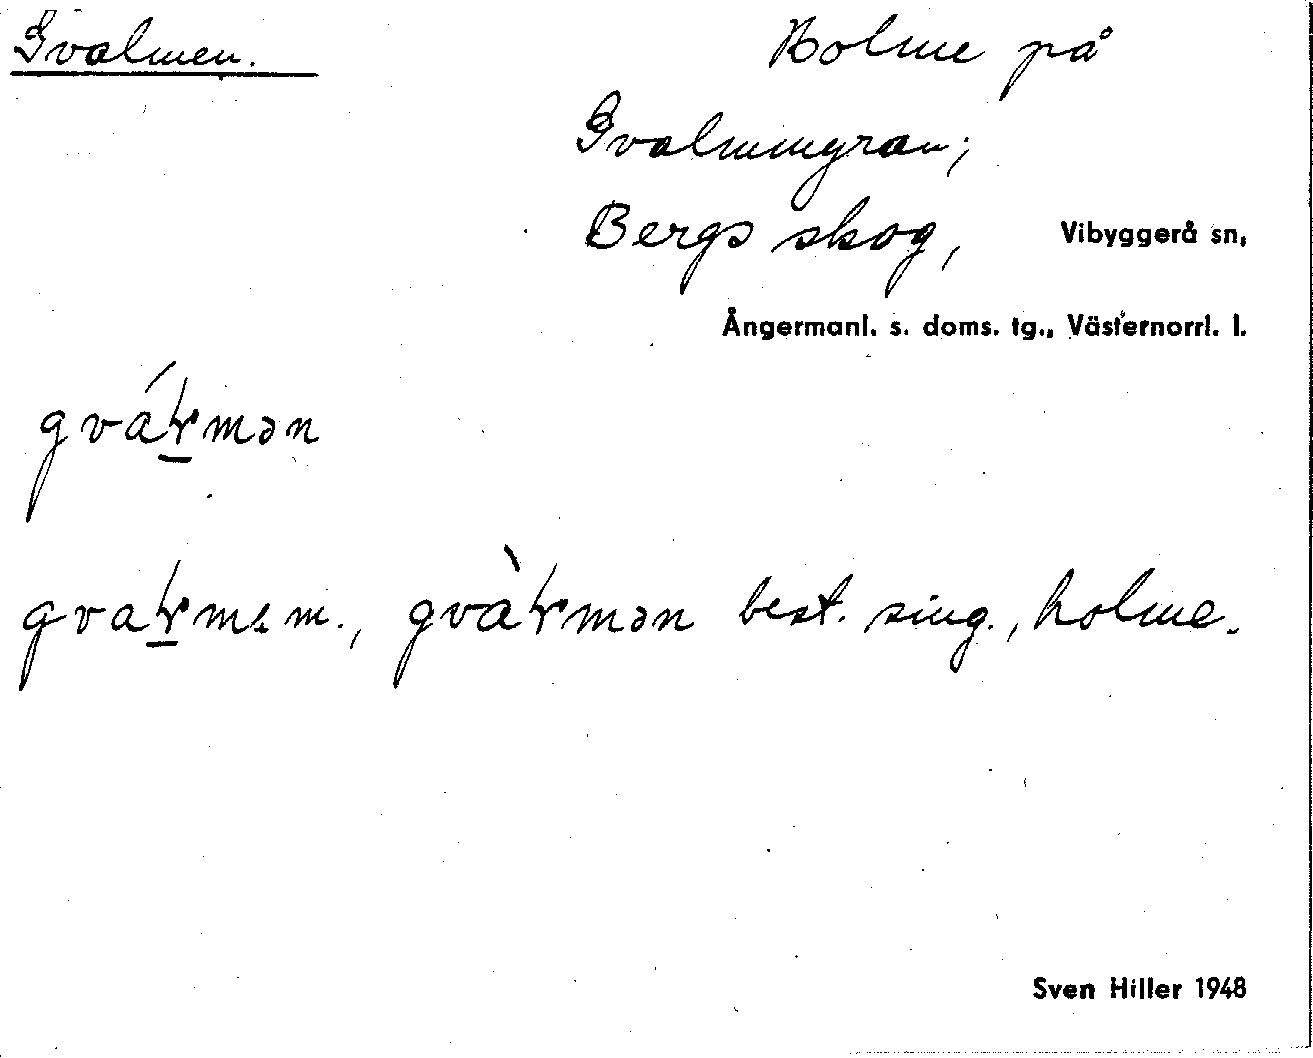 Gvalmen. Holme på
Gvalmmyran;
Bergs skog, Vibyggerå sn,
Ångermanl. s. doms. tg., Västernorrl. l.
best. sing., holme.
Sven Hiller 1948